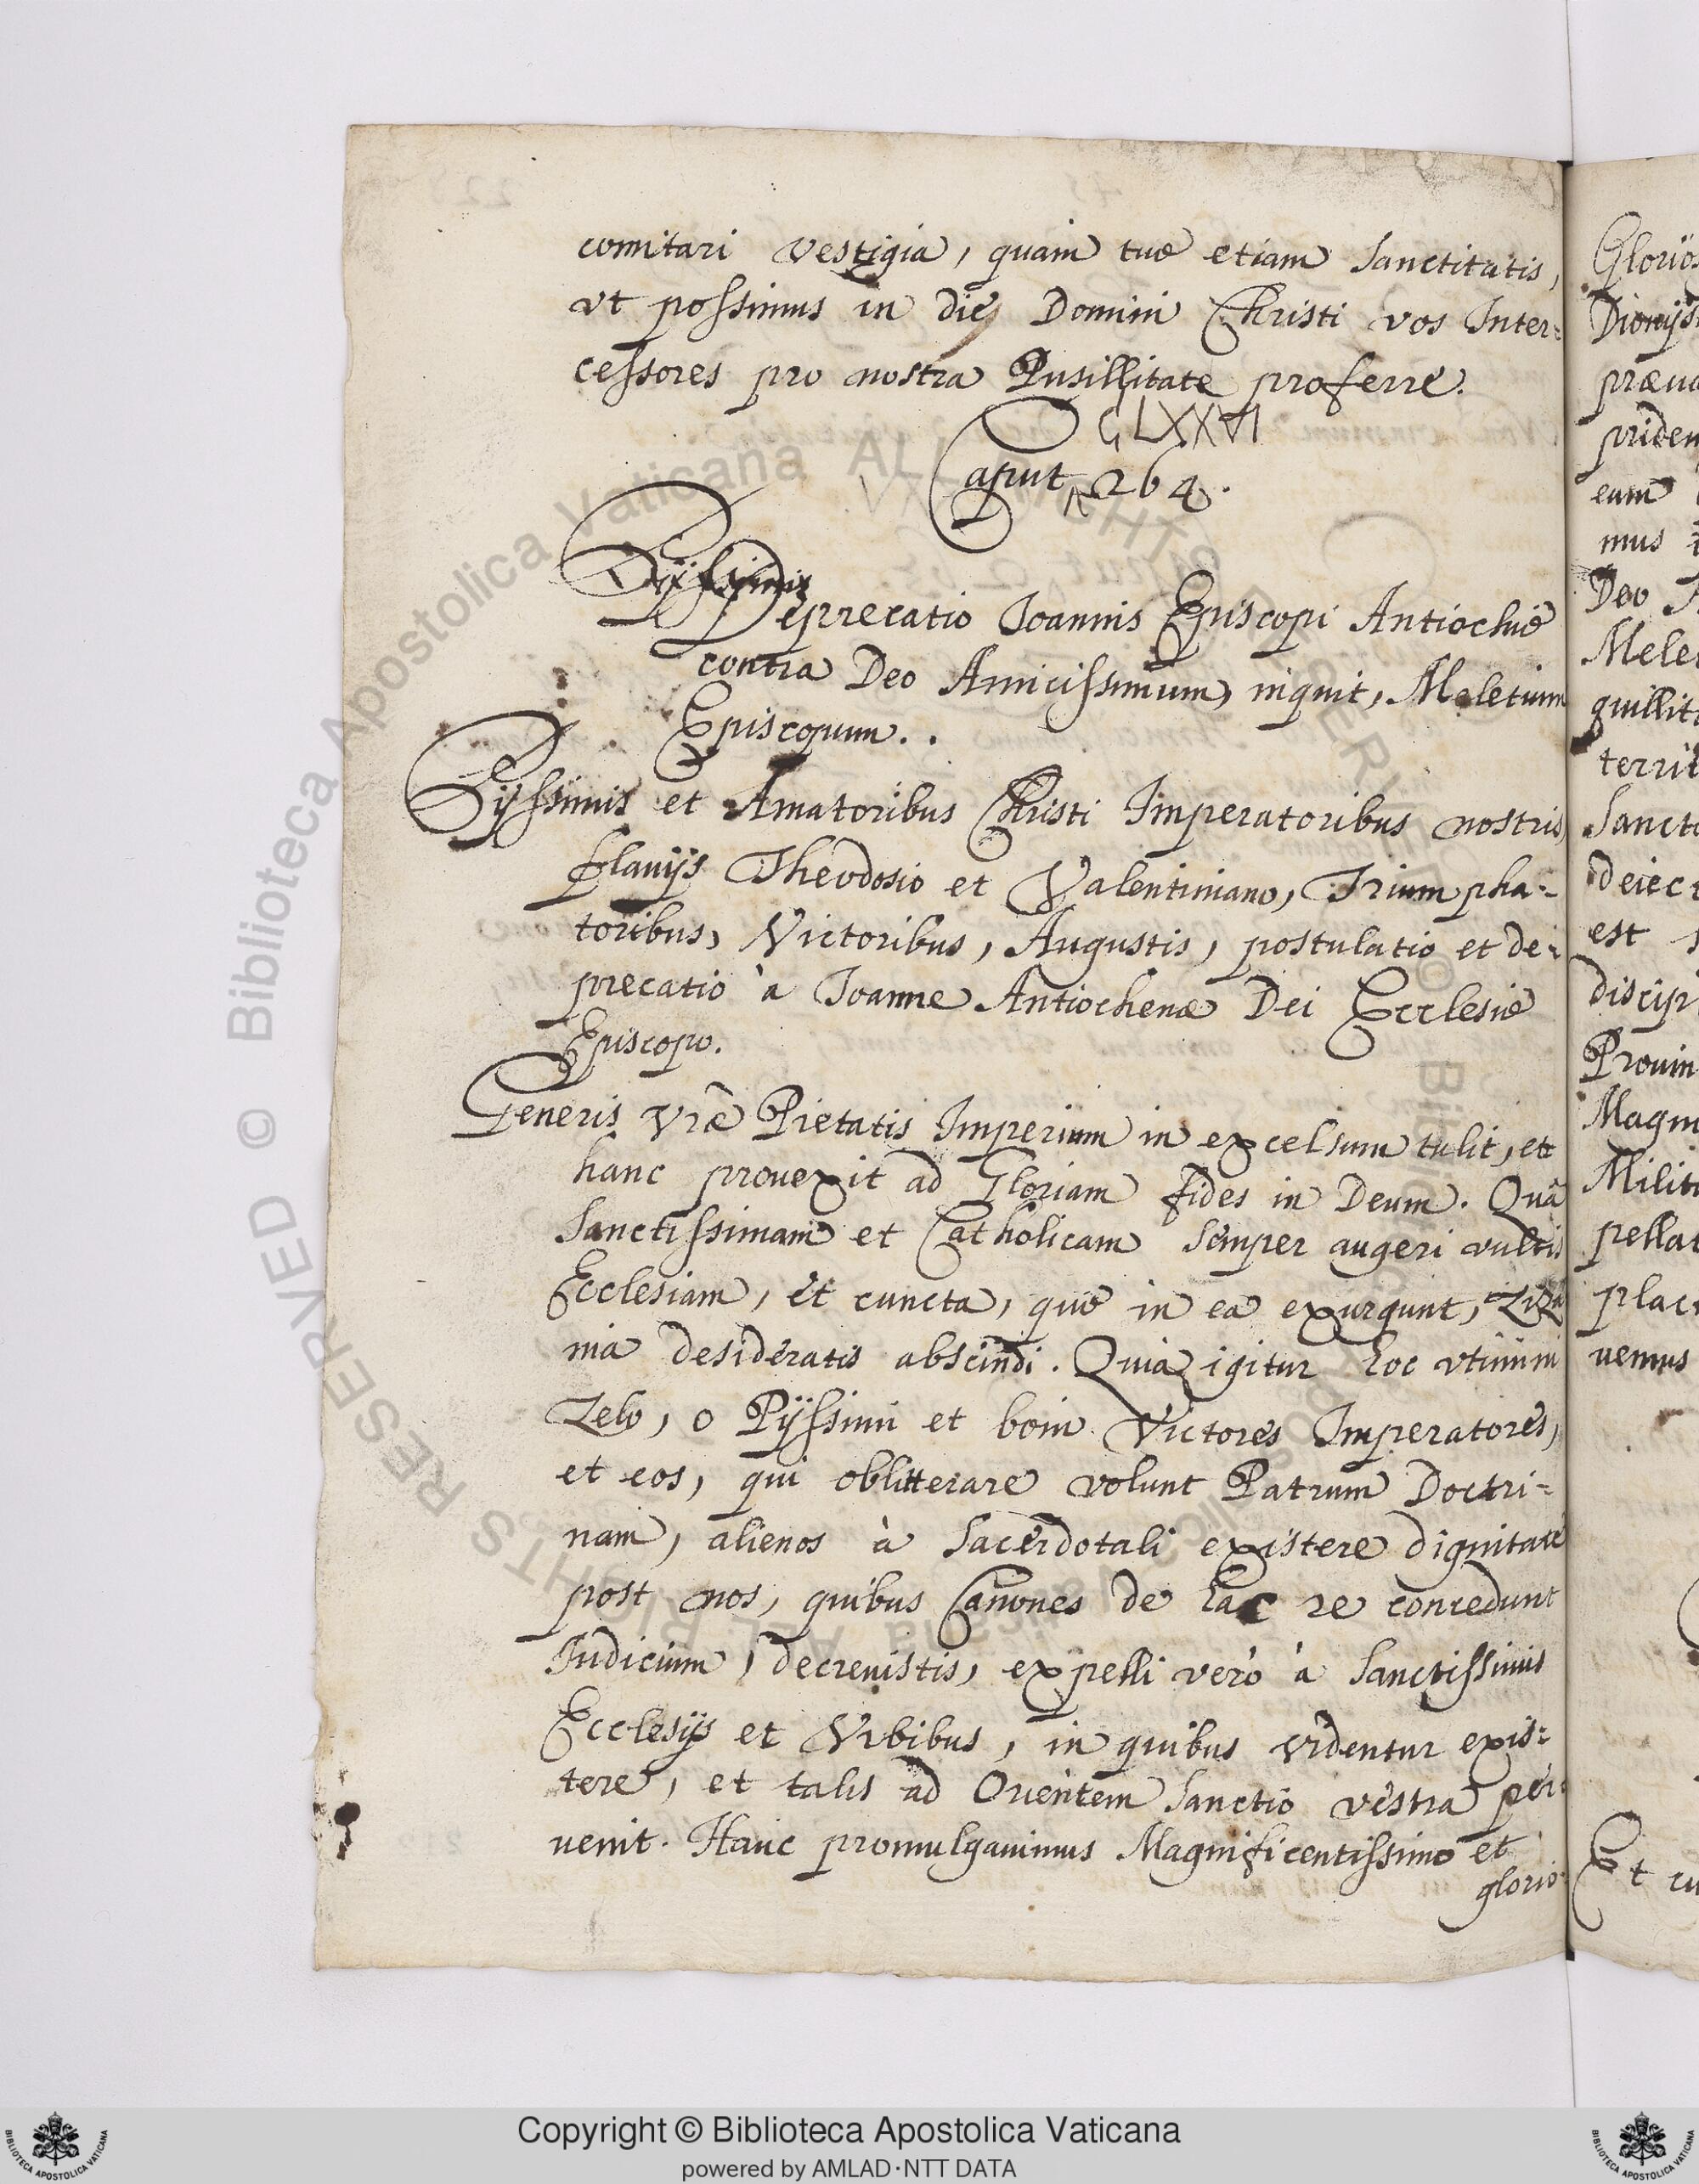 comitari vestigia, quam tuę etiam Sanctitatis,
vt possimus in die Domini Christi vos Inter=
cessores pro nostra Pusillitate proferre.
CLXXVI
Caput 264.
Pijssimis
Deprecatio Joannis Episcopi Antiochię
contra Deo Amicissimum, inquit, Meletium
Episcopum..
Pijssimis et Amatoribus Christi Imperatoribus nostris
flauijs Theodosio et Valentiniano, Trium pha=
toribus, Victoribus, Augustis, postulatio et de=
precatio à Joanne Antiochenæ Dei Ecclesię
Episcopo.
Generis vræ̃ Pietatis Imperium in excelsum tulit, et
hanc prouexit ad Gloriam fides in Deum. Quã
Sanctissimam et Catholicam semper augeri vultis
Ecclesiam, et cuncta, quę in ea exurgunt, Ziza
nia desideratis abscindi. Quia igitur hoc vtimini
Zelo, o Pijssimi et boni Victores Imperatores,
et eos, qui oblitterare volunt Patrum Doctri=
nam, alienos à Sacerdotali existere dignitate
post nos, quibus Canones de hac re concedunt
Iudicium, decreuistis, expelli verò à Sanctissimis
Ecclesijs et Vrbibus, in quibus videntur exis=
tere, et talis ad Orientem Sanctio vestra per=
uenit. Hanc promulgauimus Magnificentissimo et
glorio=
Glorios
Dionijsi
præua
priden
eum
mus
Deo
Mele
quillit
territ
Sancto
deiect
est
discip
Prouin
Magni
Milit
pellat
plac
uemus
Et cu
© Biblioteca Apostolica Vaticana ALL RIGHTS RESERVED
Copyright © Biblioteca Apostolica Vaticana
powered by AMLAD·NTT DATA
BIBLIOTECA APOSTOLICA VATICANA
BIBLIOTECA APOSTOLICA VATICANA